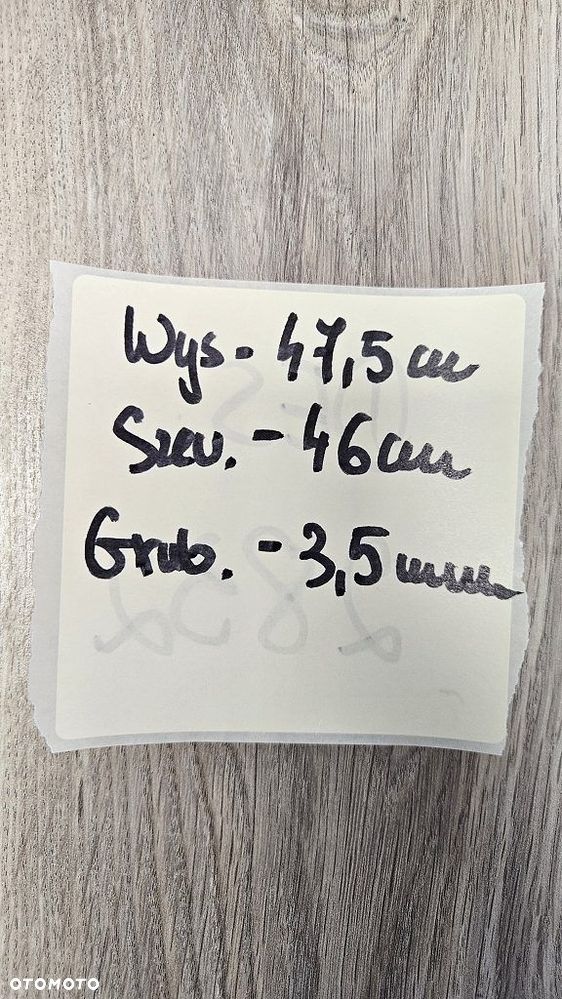 Wys - 47,5 cm
Szer. - 46 cm
Grub. - 3,5 mm
OTOMOTO